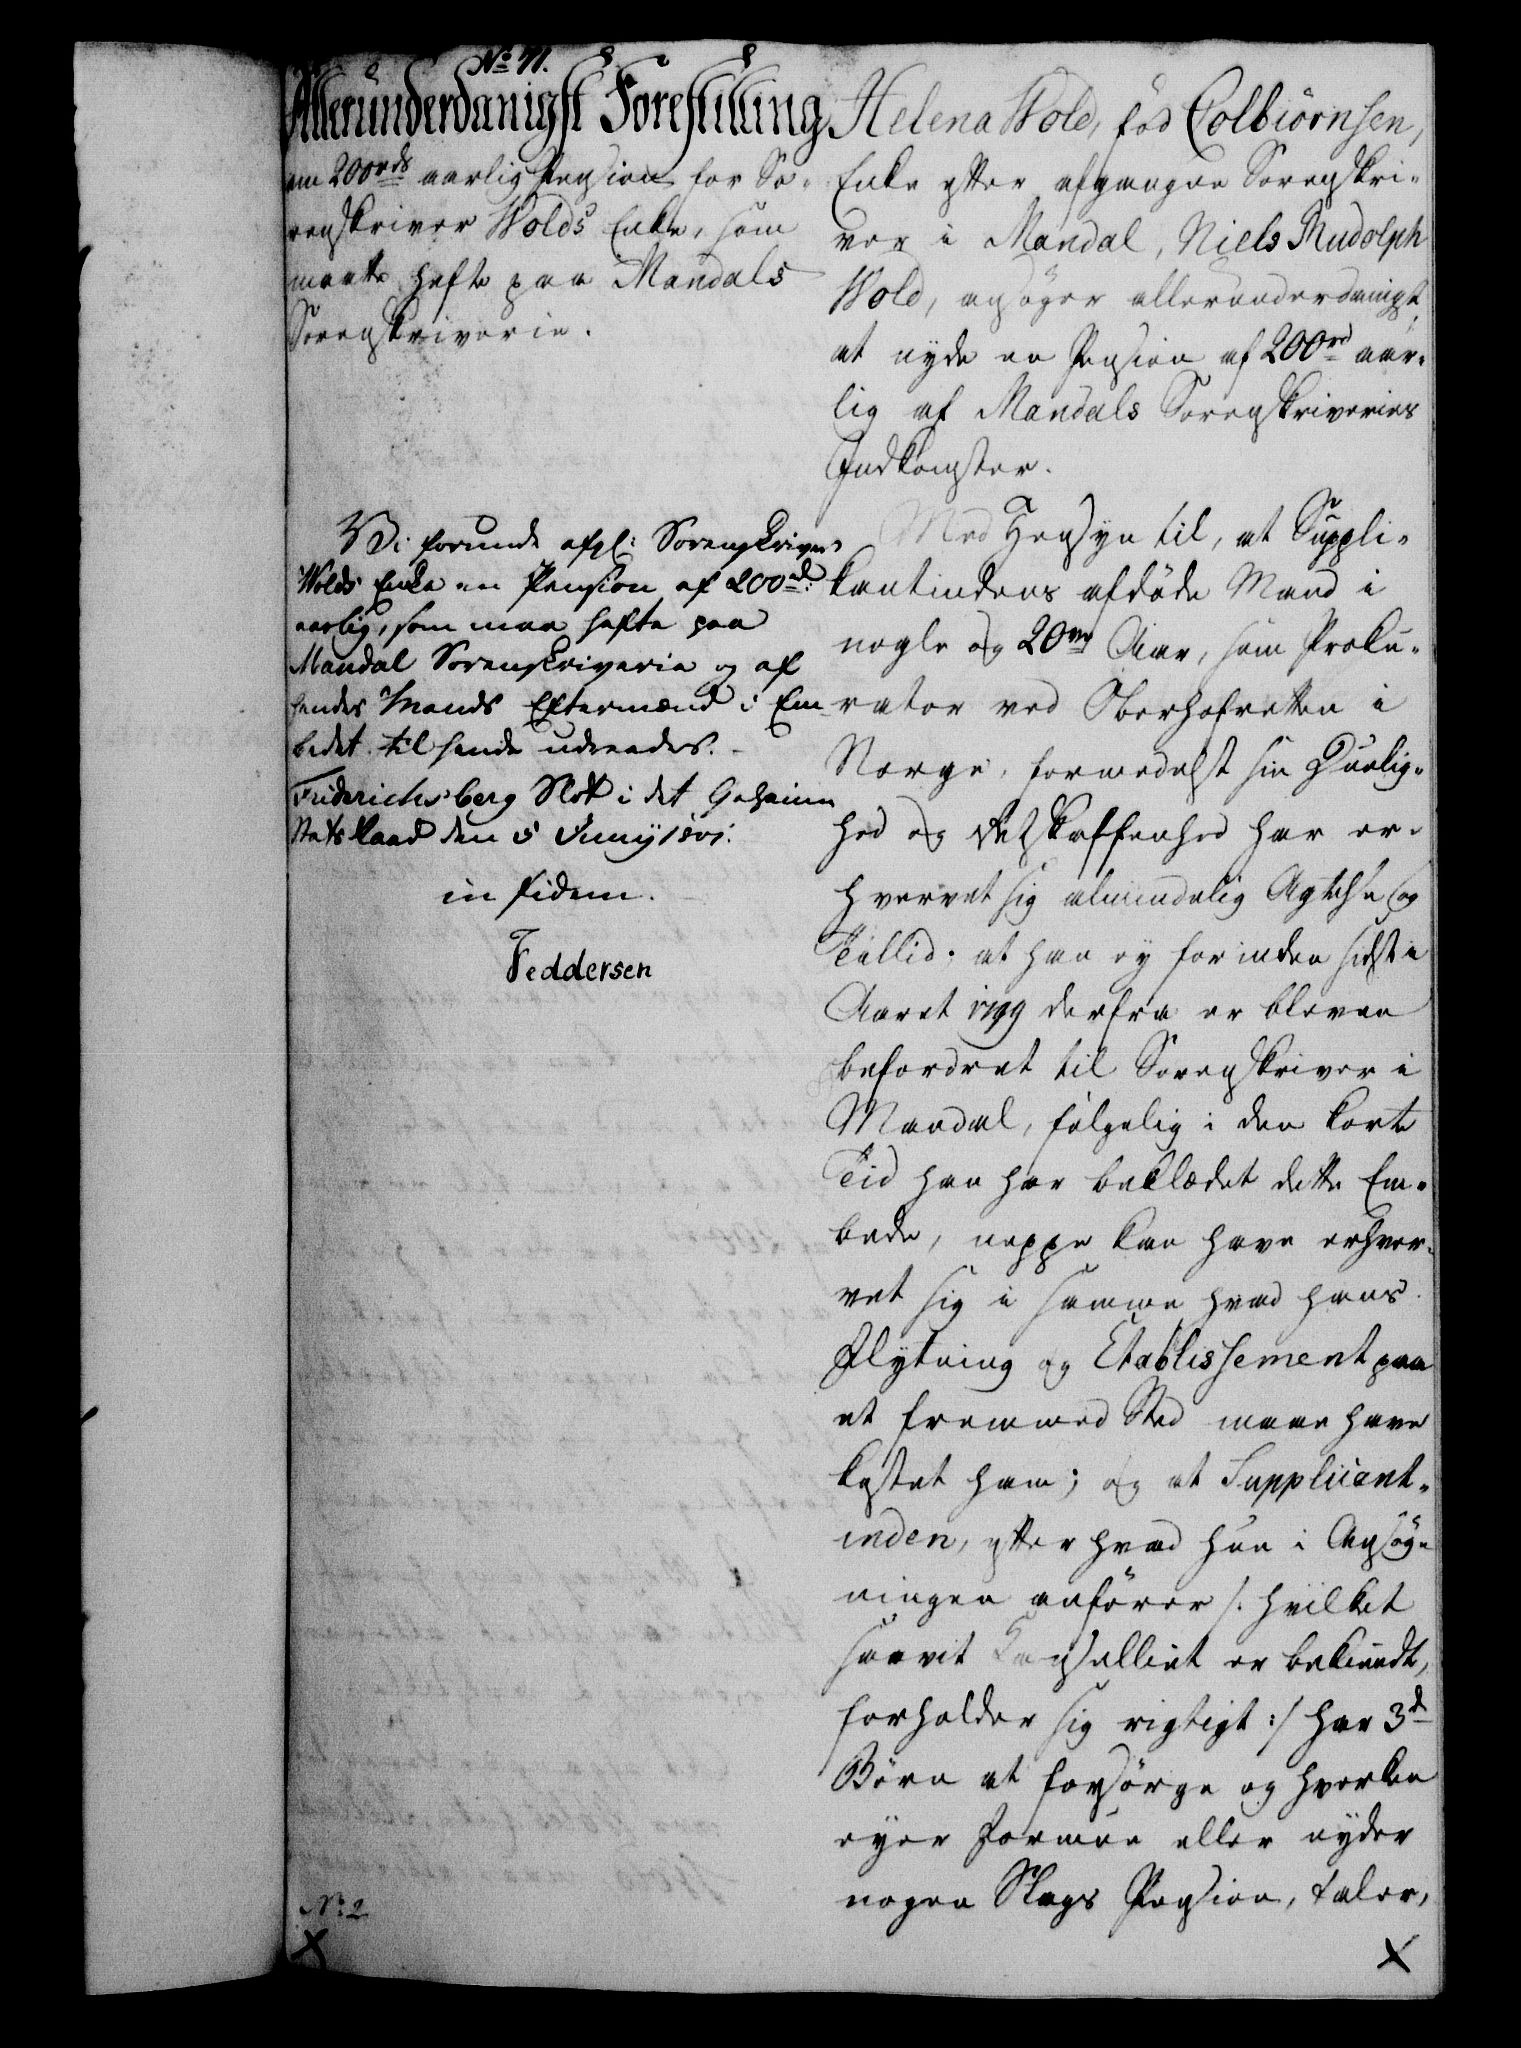 No 71.
Allerunderdanigst Forestilling
om 200 rds aarlig Pension for So-
renskriver Wolds Enke, som
maatte hefte paa Mandals
Sorenskriverie.
Vi forunde afg: Sorenskriver
Wolds Enke en Pension af 200 rd:
aarlig, som maa hefte paa
Mandal Sorenskriverie og af
hendes Mands Eftermænd i Em-
bedet til hende udredes.
Friderichsberg Slot i det Geheime
Stats Raad den 5 Junij 1801.
in fidem.
Feddersen
No 2
Helena Wold, fød Colbiørnsen,
Enke efter afgangne Sorenskri-
ver i Mandal, Niels Rudolph
Wold, ansøger allerunderdanigst,
at nyde en Pension af 200 rd aar-
lig af Mandals Sorenskriveries
Indkomster.
Med Hensyn til, at Suppli-
kantindens afdøde Mand i
nogle og 20ve Aar, som Proku-
rator ved Overhofretten i
Norge, formedelst sin Duelig-
hed og Retskaffenhed har er-
hvervet sig almindelig Agtelse og
Tillid; at han ey forinden sidst i
Aaret 1799 derfra er bleven
befordret til Sorenskriver i
Mandal, følgelig i den korte
Tid han har beklædet dette Em-
bede, neppe kan have erhver-
vet sig i samme hvad hans
Flytning og Etablissement paa
et fremmed Sted maae have
kostet ham; og at Supplicant-
inden, efter hvad hun i Ansøg-
ningen anfører /: hvilket
saavit Kancelliet er bekiendt,
forholder sig rigtigt :/ har 3de
Børn at forsørge og hverken
eyer Formue eller nyder
nogen Slags Pension, taler,